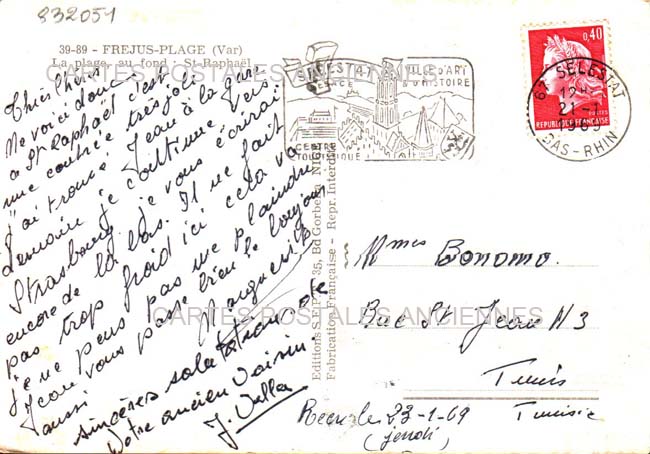 832051
39-89 - FREJUS-PLAGE (Var)
La plage, au fond : St-Raphaël
CARTES POSTALES ANCIENNES
Chères
Me voici donc
à St Raphaël c'est
une contrée très jolie
j'ai trouvé Jean à la gare
demain je continue vers
Strasbourg je vous écrirai
encore de là bas. Il ne fait
pas trop froid ici cela va
je ne peux pas me plaindre
Jean vous passe bien le bonjour
aussi Marguerite
sincères salutations de
Votre ancien voisin
J. Vella
SELESTAT
VILLE D'ART
& D'HISTOIRE
CENTRE
TOURISTIQUE
0,40
POSTES
REPUBLIQUE FRANÇAISE
67 SELESTAT
12H
21-1
1969
BAS-RHIN
35, Bd Gorbella NICE
Fabrication Française - Repr. Interdite
Mmes Bonomo
Rue St Jean N 3
Tunis
Tunisie
CARTES POSTALES ANCIENNES
23-1-69
(jeudi)